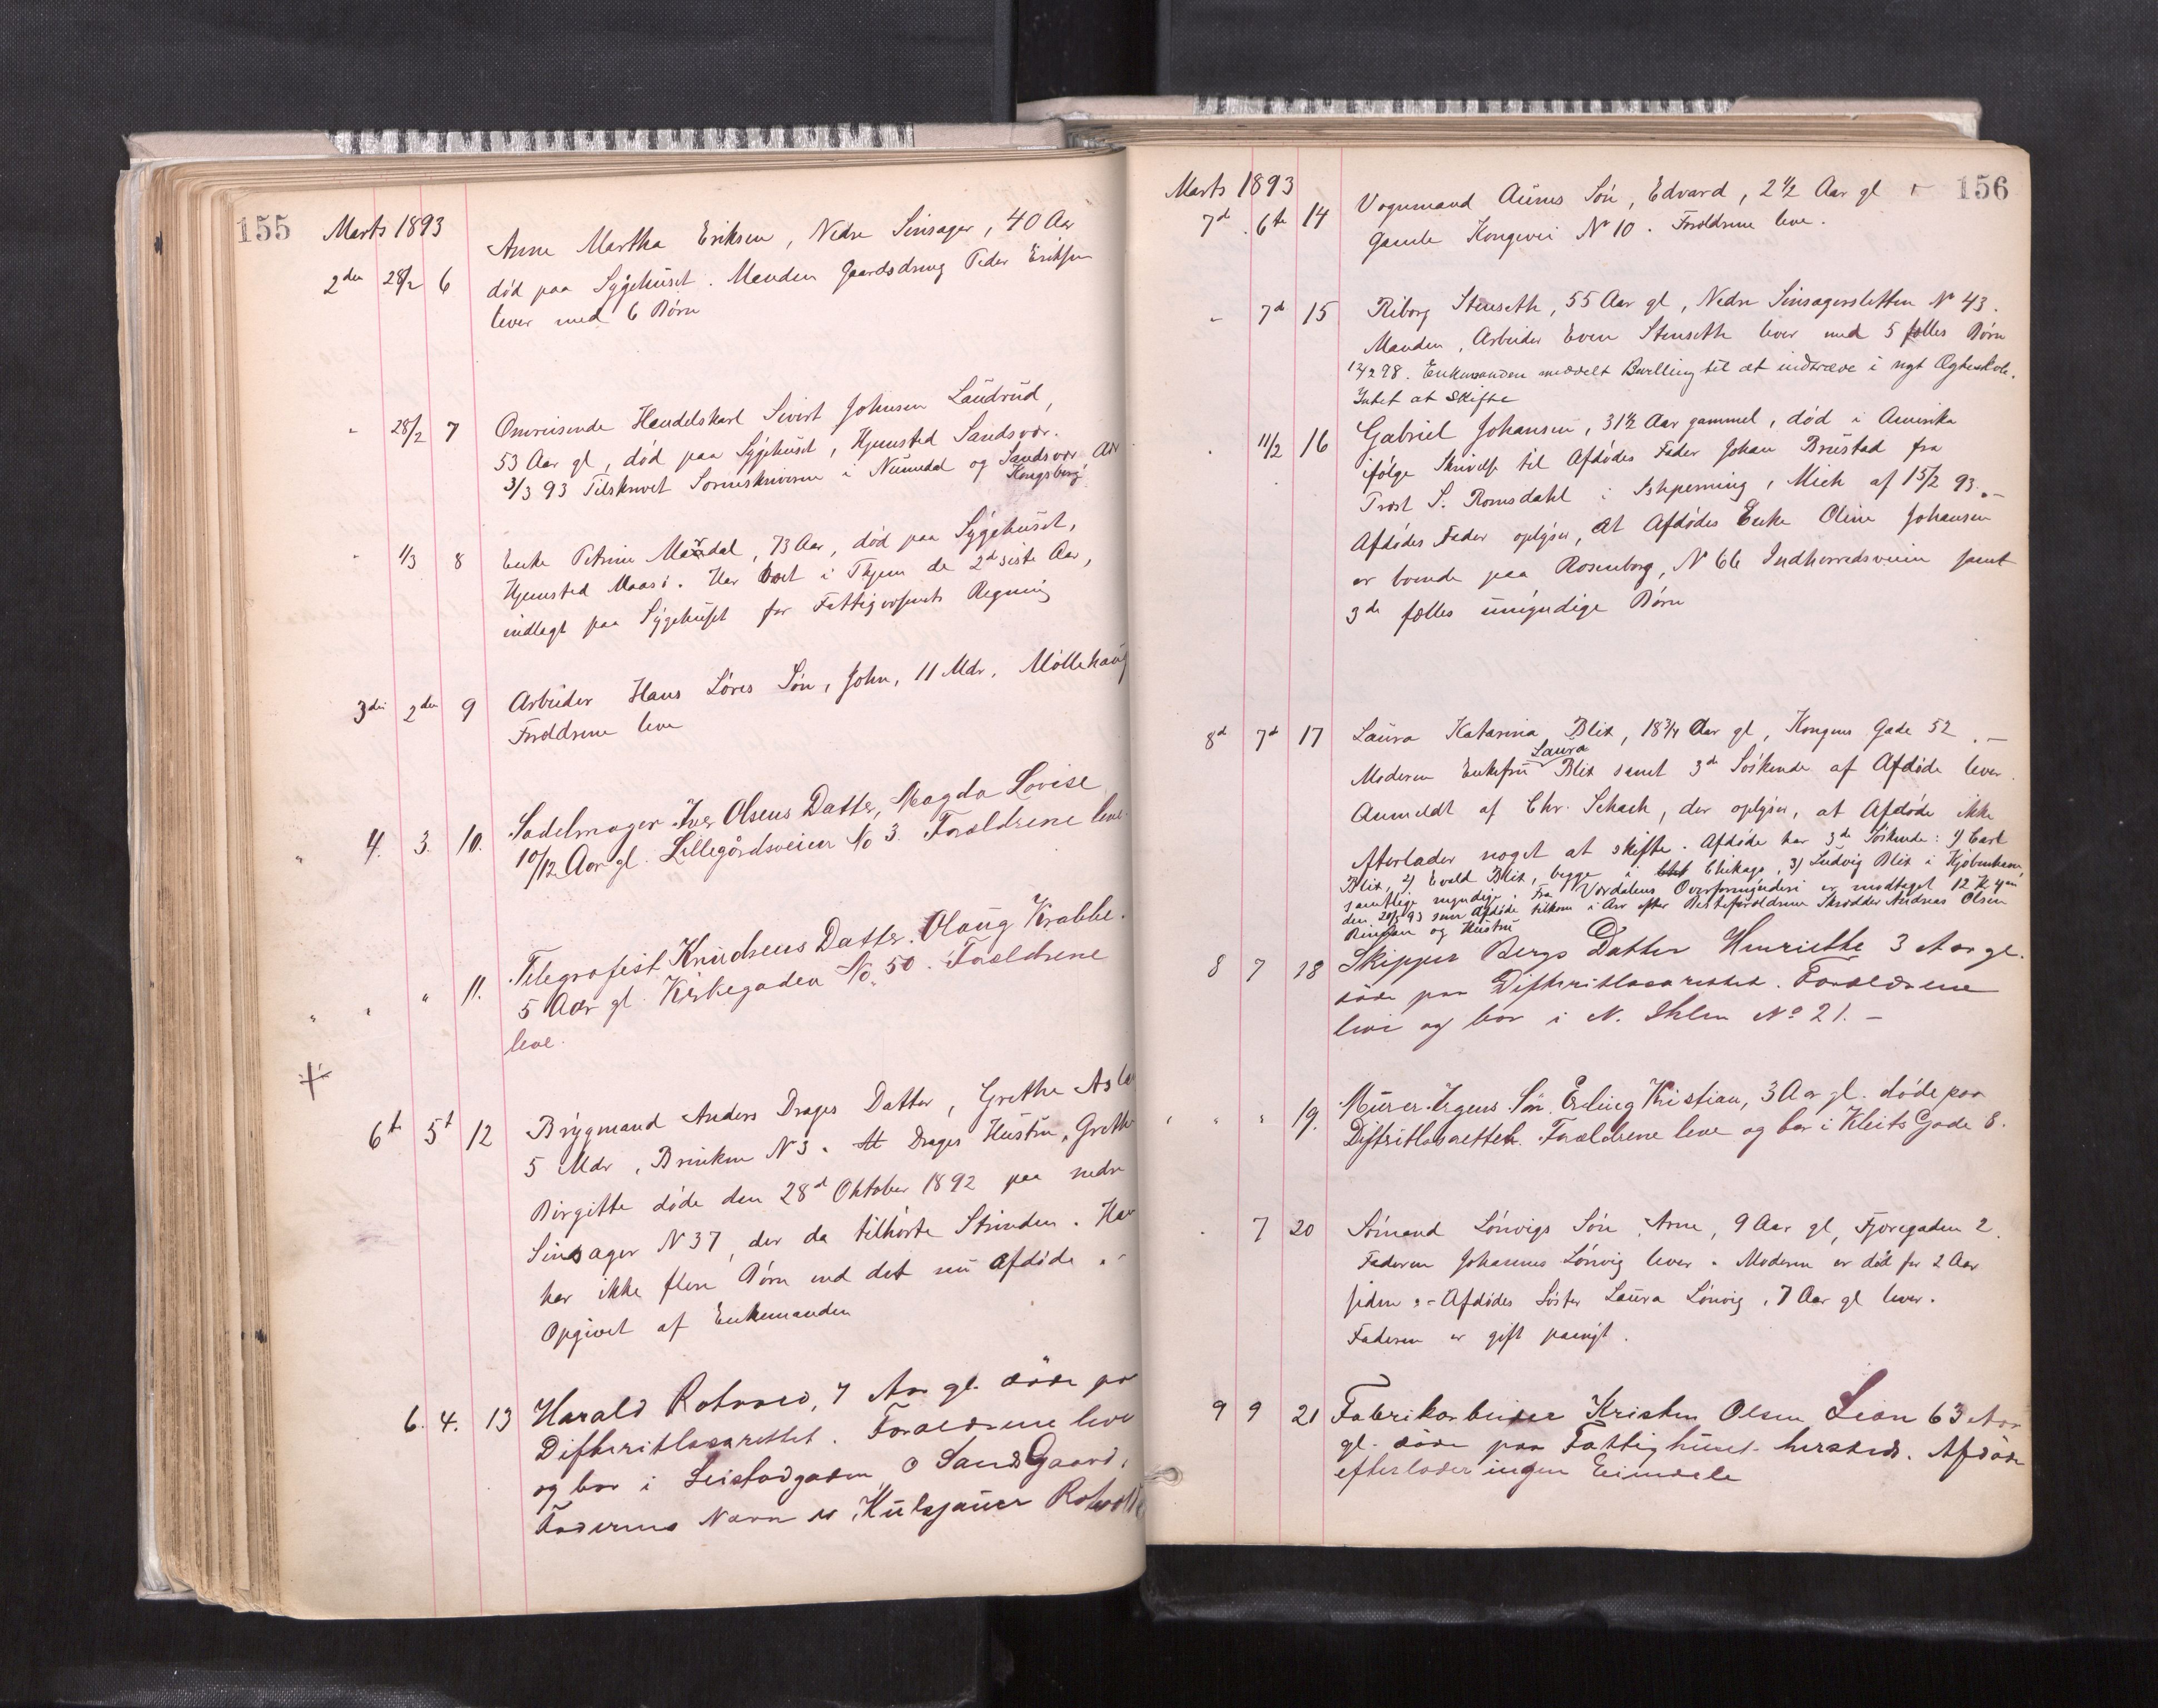 155
Marts 1893
2den 28/2 6 Anne Martha Eriksen, Nedre Sinsager, 40 Aar
død paa Sygehuset. Manden Gaardsdreng Peder Eriksen
lever med 6 Børn
" 28/2 7 Omreisende Handelskarl Sivert Johnsen Laudrud,
53 Aar gl, død paa Sygehuset, Hjemsted Sandsvær.
3/3 93 Tilskrevet Sorenskriveren i Numedal og Sandsvær Adr
Kongsberg
" 1/3 8 Enke Petrine Maardal, 73 Aar, død paa Sygehuset,
Hjemsted Maasø. Har boet i Thjem de 2de siste Aar,
indlagt paa Sygehuset for Fattigvæsenets Regning
3die 2den 9 Arbeider Hans Löves Søn, John, 11 Mdr, Møllehaug
Forældrene leve
" 4. 3. 10. Sadelmager Iver Olsens Datter, Magda Lovise
10/12 Aar gl. Lillegårdsveien No 3. Forældrene leve.
" " " 11. Telegrafist Knudsens Datter. Olaug Krabbe.
5 Aar gl. Kirkegaden No. 50. Forældrene
leve.
6t 5t 12 Brygmand Anders Drages Datter, Grethe
5 Mdr, Brinken N 3. Drages Hustru, Grethe
Birgitte døde den 28d Oktober 1892 paa nedre
Sinsager N 37, der da tilhørte Strinden. Han
har ikke flere Børn end det nu afdøde.-
Opgivet af Enkemanden
6. 4. 13 Harald Rotvold, 7 Aar gl. døde paa
Difteritlasarettet. Forældrene leve
og bor i Leistadgaden, O Sands Gaard.
Faderens Navn er, Kulsjauer Rotvold
156
Marts 1893
7d 6te 14 Vognmand Aunes Søn, Edvard, 2 1/2 Aar gl
Gamle Kongevei No 10. Forældrene leve.
" 7d 15 Riborg Stenseth, 55 Aar gl, Nedre Sinsagersletten No 43.
Manden, Arbeider Even Stenseth lever med 5 fælles Børn
12/2 98. Enkemanden meddelt Bevilling til at indtræde i nyt Ægteskab.
Intet at skifte
" 11/2 16 Gabriel Johansen, 31 1/2 Aar gammel, død i Amerika
ifølge Skrivelse til Afdødes Fader Johan Brustad fra
Prost S. Romsdahl i Ishpeming, Mich af 15/2 93.-
Afdødes Fader oplyser, at Afdødes Enke Oline Johansen
er boende paa Rosenborg, N 66 Indherredsveien samt
3de fælles umyndige Børn
8d 7d 17 Laura Katarina Blix, 18 3/4 Aar gl, Kongens Gade 52.-
Moderen Enkefru Laura Blix samt 3de Søskende af Afdøde lever.
Anmeldt af Chr. Schach, der oplyser, at Afdøde ikke
efterlader noget at skifte. Afdøde har 3de Søskende: 1) Carl
Blix, 2) Evald Blix, begge i Chikago, 3) Ludvig Blix i Kjøbenhavn,
samtlige myndige. Fra Værdalens Overformynderi er modtaget 12 K
den 20/5 93 som Afdøde tilkom i Arv efter Besteforældrene Skrædder Andreas Olsen
Rinnan og Hustru
8 7 18 Skipper Bergs Datter Henriette 3 Aar gl.
døde paa Difteritlasarettet. Forældrene
leve og bor i N. Ihlen No 21.-
" " " 19. Murer Irgens Søn. Erling Kristian, 3 Aar gl. døde paa
Difteritlasarettet. Forældrene leve og bor i Kleits Gade 8.
" 7 20 Sømand Lönvigs Søn, Arne, 9 Aar gl, Fjæregaden 2.
Faderen Johannes Lönvig lever. Moderen er død for 2 Aar
siden.- Afdødes Søster Laura Lönvig, 7 Aar gl lever.
Faderen er gift paanyt.
9 9 21 Fabrikarbeider Kristen Olsen Lian 63 Aar
gl. døde paa Fattighuset hersteds. Afdøde
efterlader ingen Eiendele